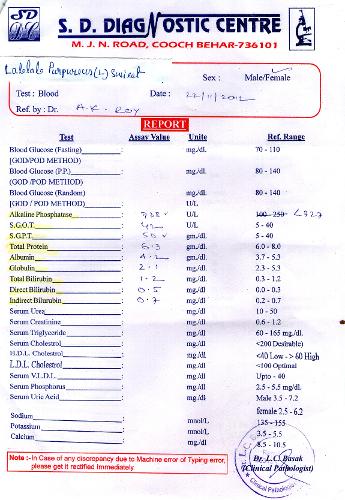 S. D. DIAGNOSTIC CENTRE
M. J. N. ROAD, COOCH BEHAR-736101
Lablab Purpureus (L) Sweet
Sex : Male/Female
Test : Blood Date : 22/11/2012
Ref. by : Dr. A.K. ROY
REPORT
Test Assay Value Units Ref. Range
Blood Glucose (Fasting) : mg./dl. 70 - 110
[GOD/POD METHOD)
Blood Glucose (P.P.) : mg./dl. 80 - 140
(GOD /POD METHOD)
Blood Glucose (Random) mg./dl. 80 - 140
[GOD / POD METHOD) : U/L
Alkaline Phosphatase : U/L 100 - 250 <327
S.G.O.T. : 42 U/L 5 - 40
S.G.P.T. : gm./dl. 5 - 40
Total Protein : 6.3 gm./dl. 6.0 - 8.0
Albumin : 4.2 gm./dl. 3.7 - 5.3
Globulin : 2.1 mg./dl. 2.3 - 5.3
Total Bilirubin : 1.2 mg./dl. 0.3 - 1.2
Direct Bilirubin : 0.5 mg./dl. 0.0 - 0.3
Indirect Bilurubin : 0.7 mg./dl. 0.2 - 0.7
Serum Urea : mg/dl 10 - 50
Serum Creatinine : mg/dl 0.6 - 1.2
Serum Triglyceride : mg/dl 60 - 165 mg./dl.
Serum Cholestrol : mg/dl <200 Desirable)
H.D.L. Cholestrol : mg/dl <40 Low - > 60 High
L.D.L. Cholestrol : mg/dl <100 Optimal
Serum V.L.D.L. : mg/dl Upto - 40
Serum Phosphorus : mg/dl 2.5 - 5.5 mg/dl.
Serum Uric Acid : mg/dl Male 3.5 - 7.2
female 2.5 - 6.2
Sodium : mmol/L 135 - 155
Potassium : mmol/L 3.5 - 5.5
Calcium : mg./dl. 8.5 - 10.5
Note :- In Case of any discrepancy due to Machine error of Typing error, please get it rectified Immediately.
Dr. L.C. Basak
(Clinical Pathologist)